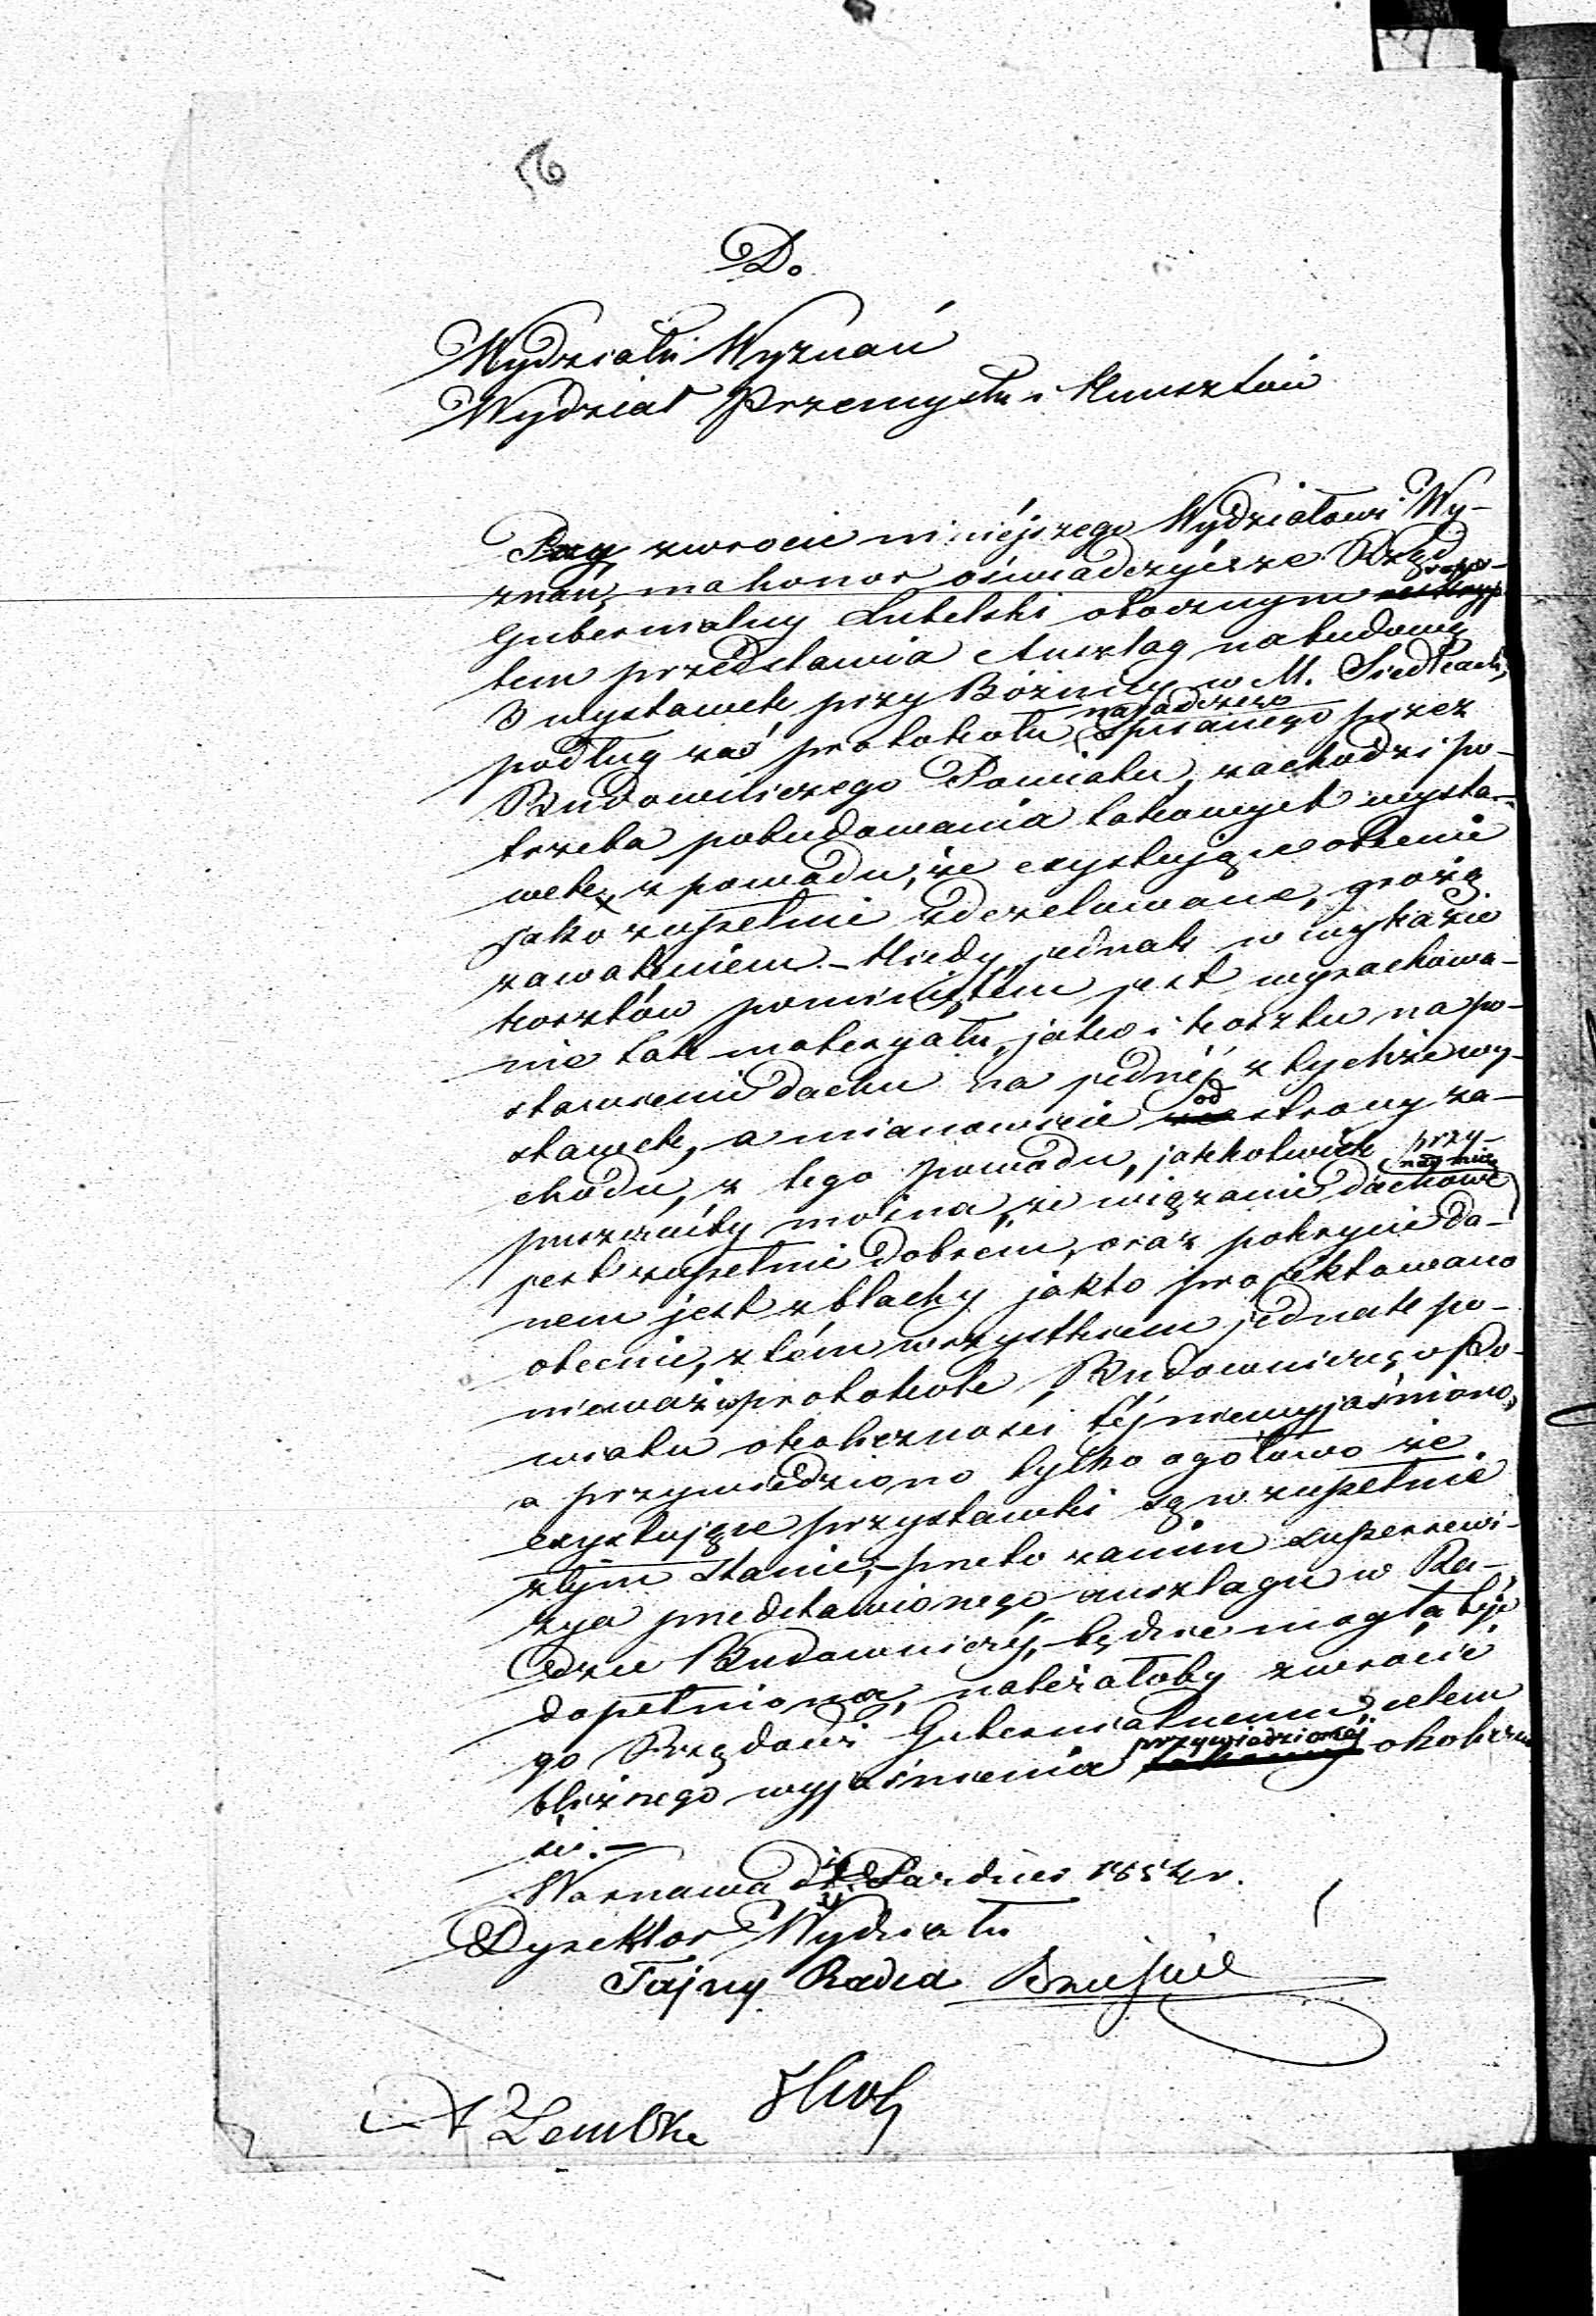 56
Do
Wydziału Wyznań
Wydział Przemysłu i Kunsztów
Przy zwrocie niniéjszego Wydziałowi Wy-
znań, ma honor oświadczyć, że Rząd
Gubernialny Lubelski obocznym rapor-
tem przedstawia Anszlag na budowę
3 wystawek przy Bóżnicy w M. Siedlcach,
podług zaś protokołu napadczero spisanego przez
Budowniczego Powiatu, zachodzi po-
trzeba pobudowania takowych wysta-
wek, z powodu, że exystujące obecnie
jako zupełnie zdezelowane, grożą
zawaleniem. – Kiedy jednak w wykazie
kosztów pominiętém jest wyrachowa-
nie tak materyału, jako i kosztu na po-
stawienie dachu na jednéj z tychże wy-
stawek, a mianowicie od strony za-
chodu, z tego powodu, jakkolwiek przy-
puszczaćby można, że wiązanie dachowe
jest zupełnie dobrém, oraz pokrycie da-
nem jest z blachy jak to projektowano
obecnie, z tém wszystkiem jednak po-
nieważ w protokole Budowniczego Po-
wiatu okoliczności téj niewyjaśniono,
a przywiedziono tylko ogółowo że
exystujące przystawki są w zupełnie
złym stanie, – przeto zanim superrewi-
zya przedstawionego anszlagu w Ra-
dzie Budowniczéj, będzie mogła być
dopełnioną, należałoby zwrócić
go Rządowi Gubernialnemu, celem
bliższego wyjaśnienia przywiedzionéj okoliczno
ści. –
Warszawa d. Paźdz 1854 r.
Dyrektor Wydziału
Tajny Radca
Lembke